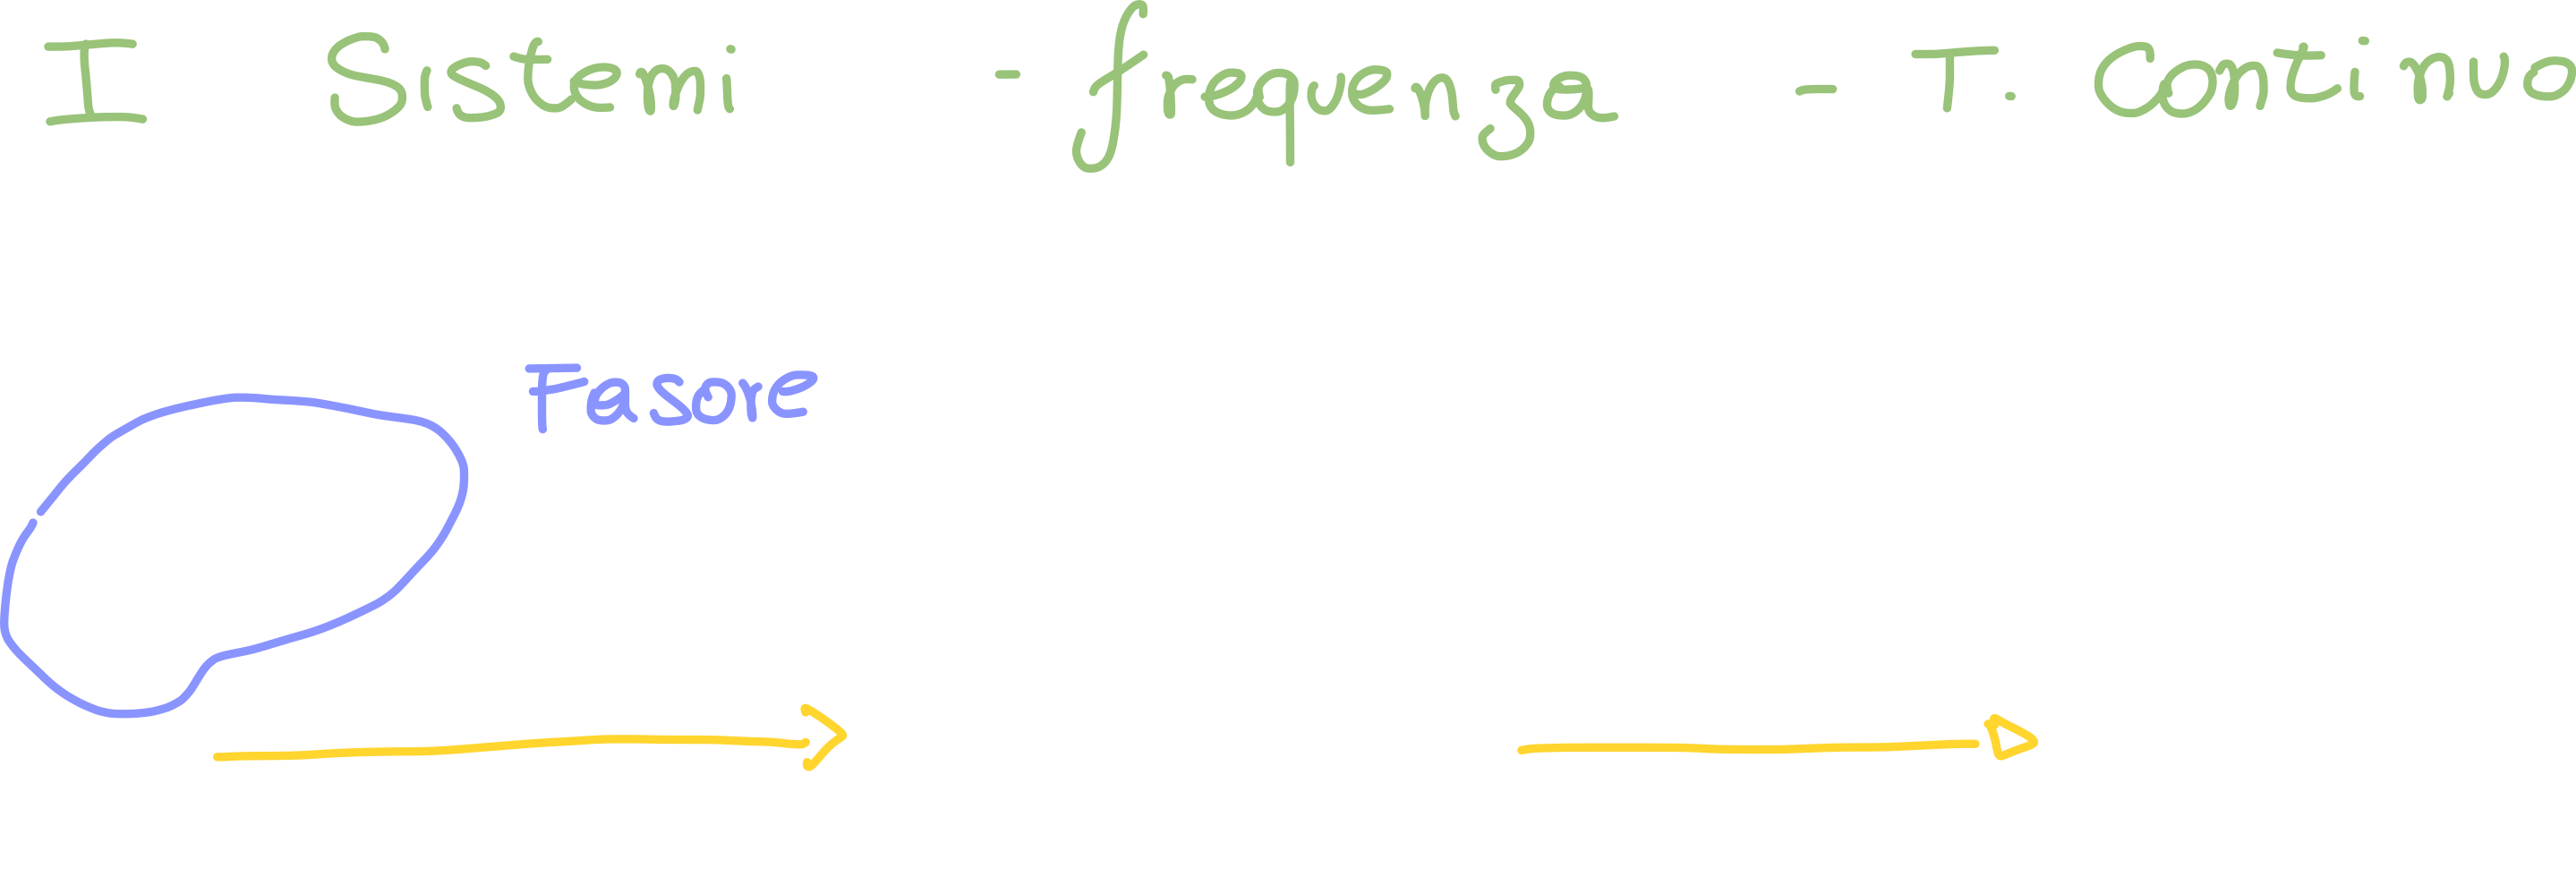 I Sistemi - frequenza - T. Continuo
Fasore